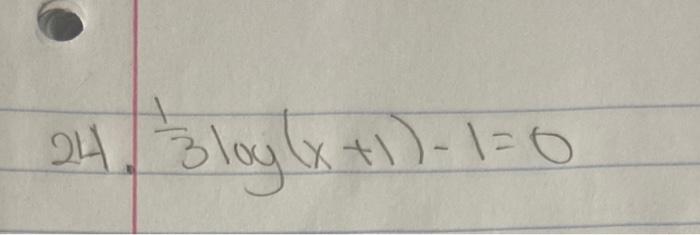 24. 1/3 log(x+1)-1=0